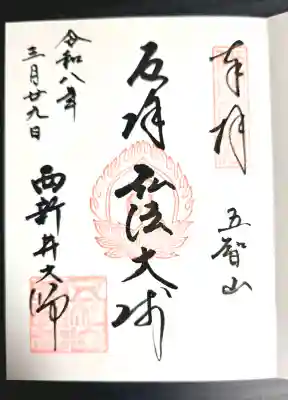 奉拝
五智山
厄除 弘法大師
西新井大師
令和八年
三月廿九日